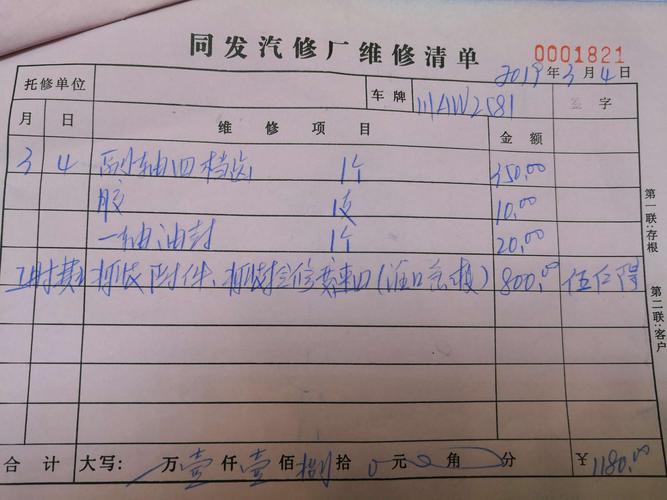 同发汽修厂维修清单 0001821
2019年3月4日
托修单位 车牌 川AW2581 签字
月 日 维修项目 金额
3 4 副轴四档齿 1个 350.00
胶 1支 10.00
一轴油封 1个 20.00
工时费: 拆装附件、拆装检修变速 800.00
第一联:存根
第二联:客户
合计 大写: 万壹仟壹佰捌拾0元 角 分 ¥1180.00